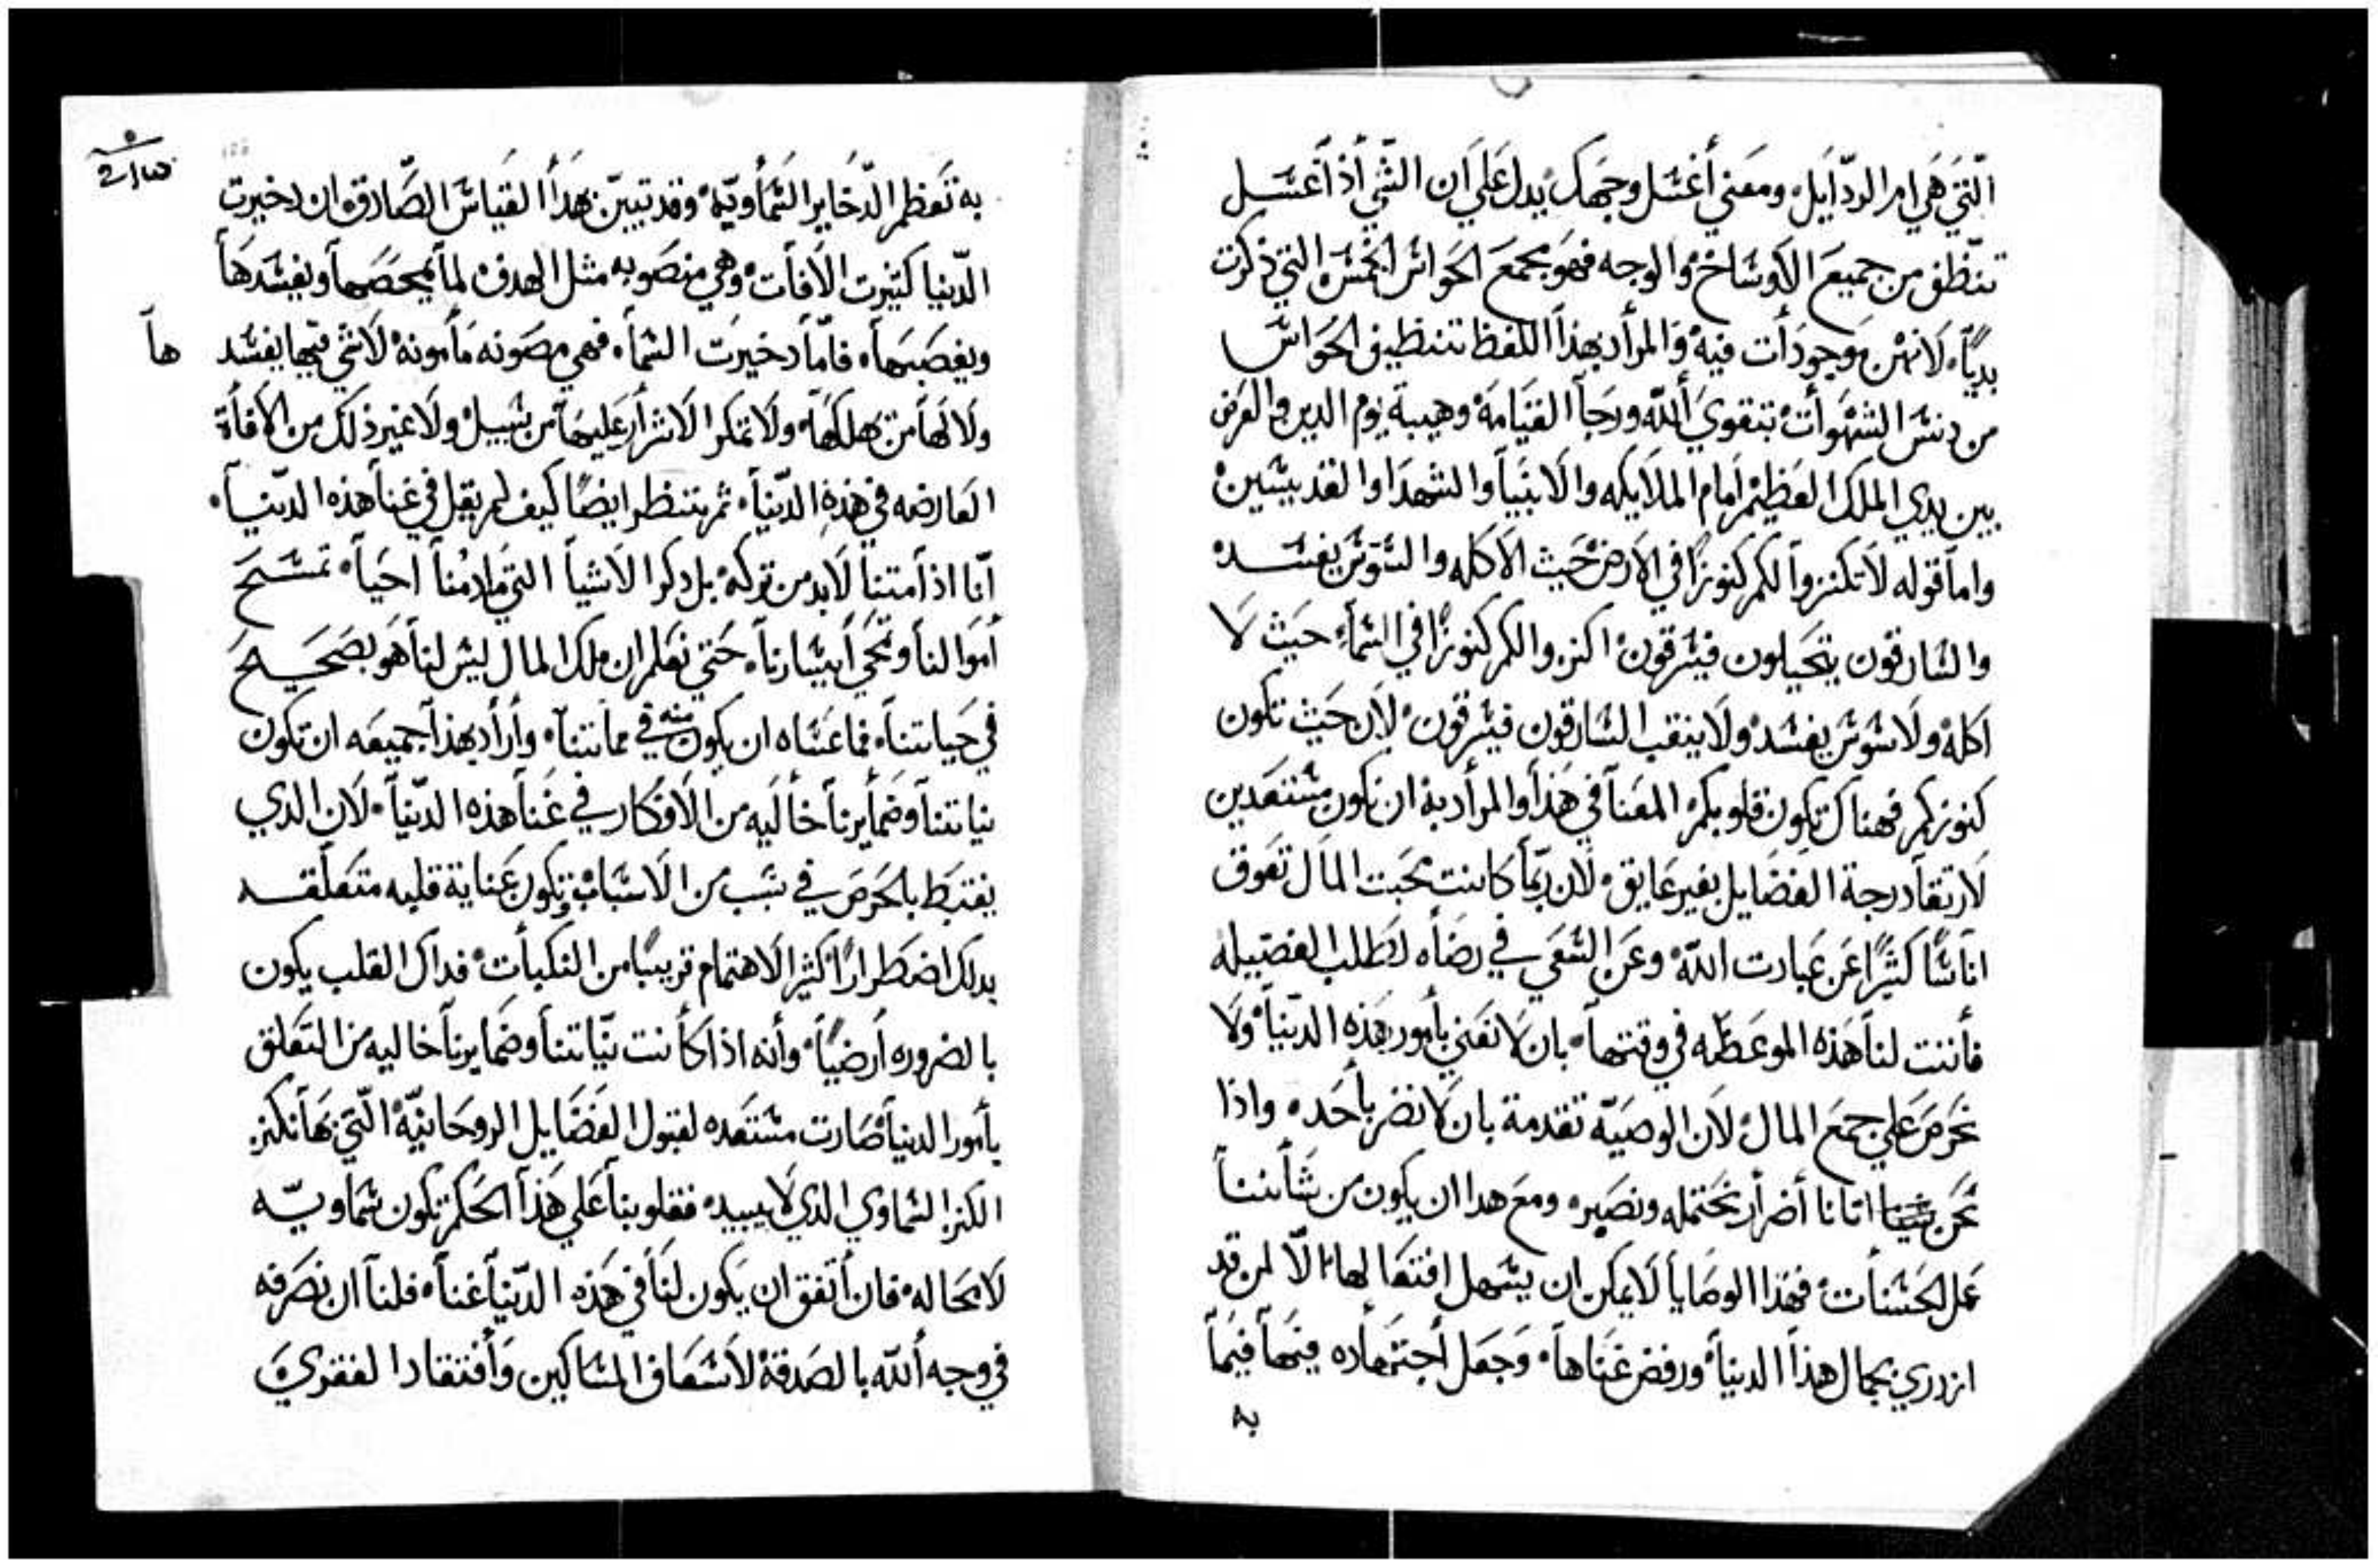 التي هي ام الردايل ومعني أغسل وجهك يدل علي ان الشي أذا أغسل
تنظف من جميع الاوساخ والوجه فهو مجمع الحواس الخمس التي ذكرت
بديًا لانهن موجودات فيه والمراد بهذا اللفظ تنظيف الحواس
من دنس الشهوات بتقوي الله ورجا القيامة وهيبة يوم الدين والعرض
بين يدي الملك العظيم امام الملايكه والانبيا والشهدا والقديسين
واما قوله لا تكنزوا لكم كنوزًا في الارض حيث الاكله والسوس يفسده
والسارقون يتحيلون فيسرقون اكنزوا لكم كنوزًا في السماء حيث لا
اكله ولا سوس يفسد ولا ينقب السارقون فيسرقون لان حيث تكون
كنوزكم فهناك تكون قلوبكم المعنا في هذا والمراد به ان نكون مستعدين
لارتقا درجة الفضايل بغير عايق لان ربما كانت محبت المال تعوق
اناسًا كثيرًا عن عبادت الله وعن السعي في رضاه لطلب الفضيله
فأتت لنا هذه الموعظه في وقتها بان لا نعني بأمور هذه الدنيا ولا
نحرص علي جمع المال لان الوصيه تقدمة بان لا نضر بأحد واذا
نحن اتانا أضرار نحتمله ونصبر ومع هدا ان يكون من شأننا
عمل الحسنات فهذا الوصايا لا يمكن ان يسهل افتعالها الا لمن قد
ازدري بجمال هذا الدنيا ورفض غناها وجعل أجتهاده فيها فيما
به
به تعظم الدخاير السماويه وقد تبين بهدا القياس الصادق ان دخيرت
الدنيا كثيرت الافات وهي منصوبه مثل الهدف لما يمحصها ويفسدها
ويغصبها فاما دخيرت السماء فهي مصونه مأمونه لا شي فيها يفسد
ها
ولا لها من يهلكها ولا تمكر الاشرار عليها من سبيل ولا غير ذلك من الافأة
العارضه في هذه الدنيا ثم تنظر ايضًا كيف لم يقل في غنا هذه الدنيا
انا اذا متنا لابد من تركه بل ذكر الاشيا التي مادمنا احيا تمسح
أموالنا ونحي أيسارنا حتي نعلم ان ملك المال ليس لنا هو بصحيح
في حياتنا فما عساه ان يكون منه في مماتنا وأراد بهذا جميعه ان تكون
نياتنا وضمأيرنا خأليه من الافكار في غنا هذه الدنيا لان الدي
يغتبط بالحرص في سبب من الاسباب وتكون عناية قلبه متعلقه
بدلك اضطرارًا كثير الاهتمام قريبًا من النكبأت فداك القلب يكون
بالضروره أرضيًا وأنه اذا كأنت نياتنا وضمايرنا خاليه من التعلق
بأمور الدنيا صارت مستعده لقبول الفضايل الروحانيه التي بها نكنز
الكنز السماوي الدي لا يبيده فقلوبنا علي هذا الحكم تكون سماويه
لا محاله فان أتفق ان يكون لنا في هذه الدنيا غناء فلنا ان نصرفه
في وجه الله بالصدقة لاسعاف المساكين وأفتقاد الفقري